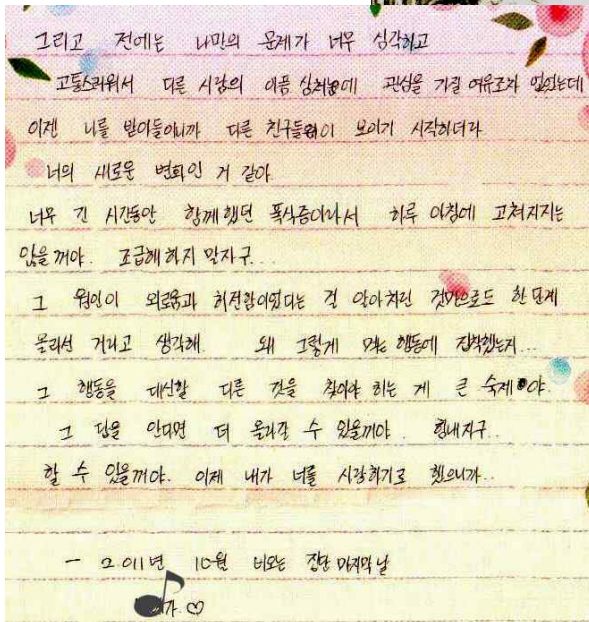 그리고 전에는 나만의 문제가 너무 심각하고
고통스러워서 다른 사람의 아픔 상처에 관심을 가질 여유조차 없었는데
이젠 나를 받아들이니까 다른 친구들이 보이기 시작하더라
너의 새로운 변화인 거 같아
너무 긴 시간동안 함께했던 폭식증이라서 하루 아침에 고쳐지지는
않을꺼야. 조급해하지 말자구...
그 원인이 외로움과 허전함이었다는 걸 알아차린 것만으로도 한 단계
올라선 거라고 생각해. 왜 그렇게 먹는 행동에 집착했는지...
그 행동을 대신할 다른 것을 찾아야 하는 게 큰 숙제야.
그 답을 안다면 더 올라갈 수 있을꺼야. 힘내자구..
할 수 있을꺼야. 이제 내가 너를 사랑하기로 했으니까..
- 2011년 10월 비오는 집단 마지막 날
가. ♡